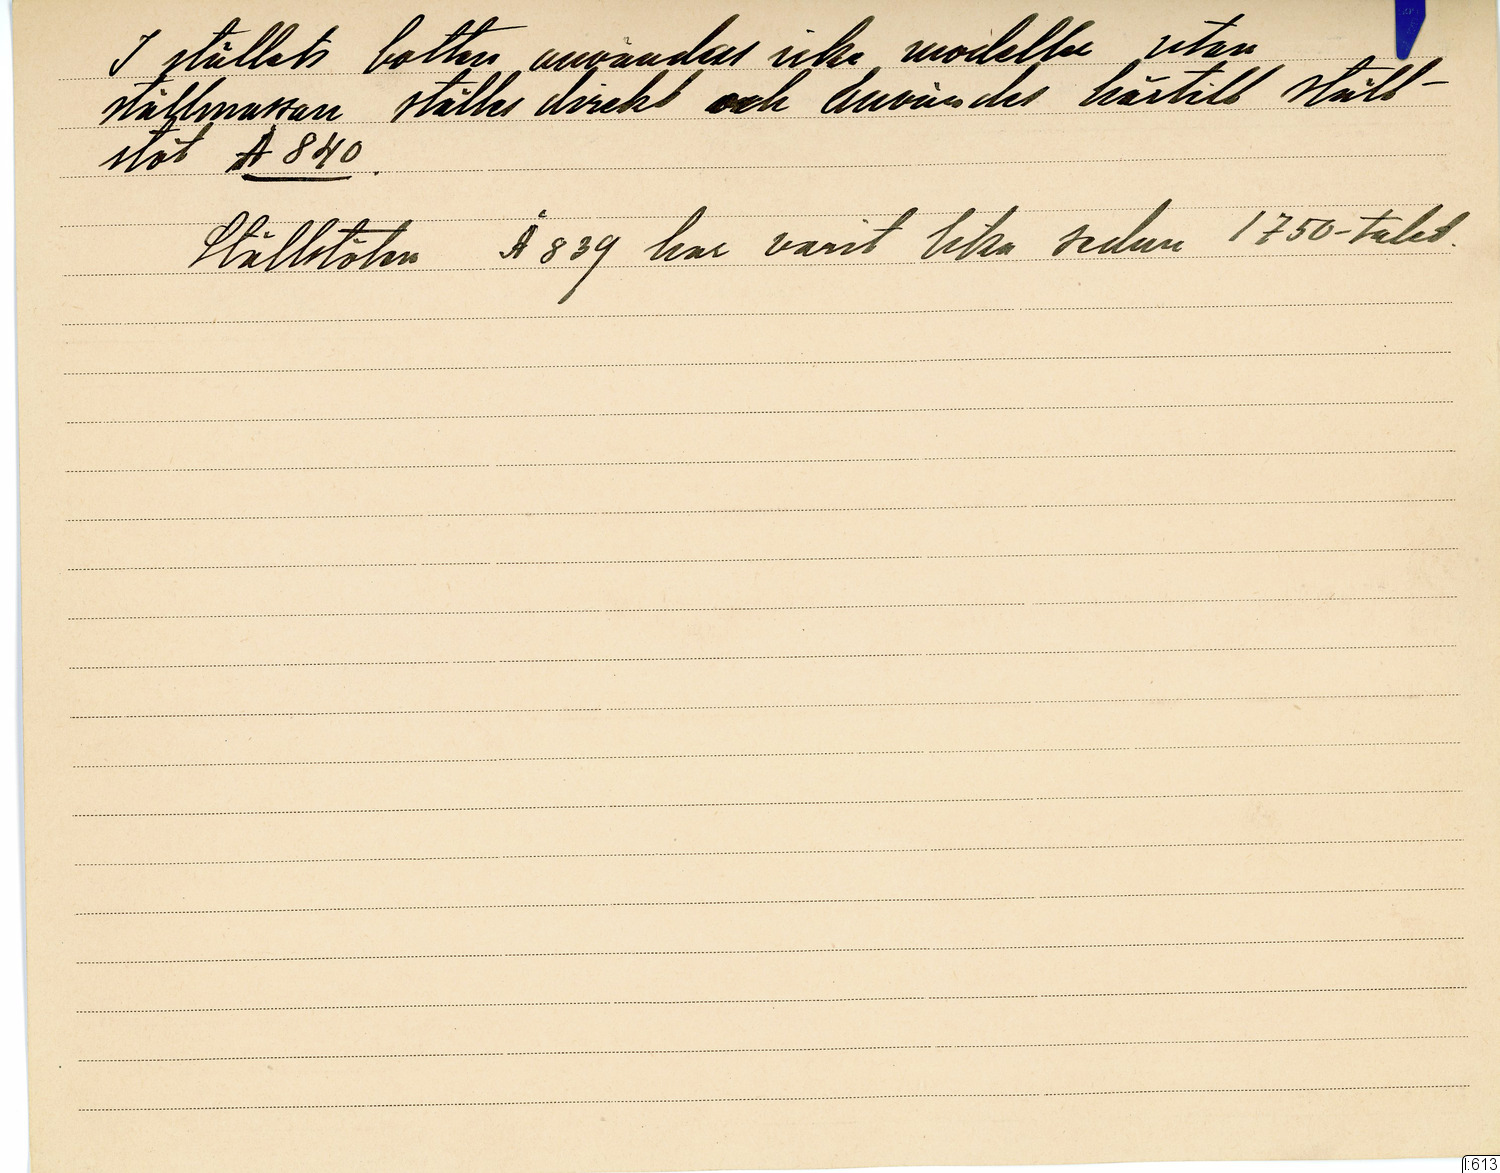 I ställets botten användas icke modeller utan
ställmassan ställes direkt och användes härtill ställ-
stöt Å 840.
Ställstöten Å 839 har varit lika sedan 1750-talet.
:613